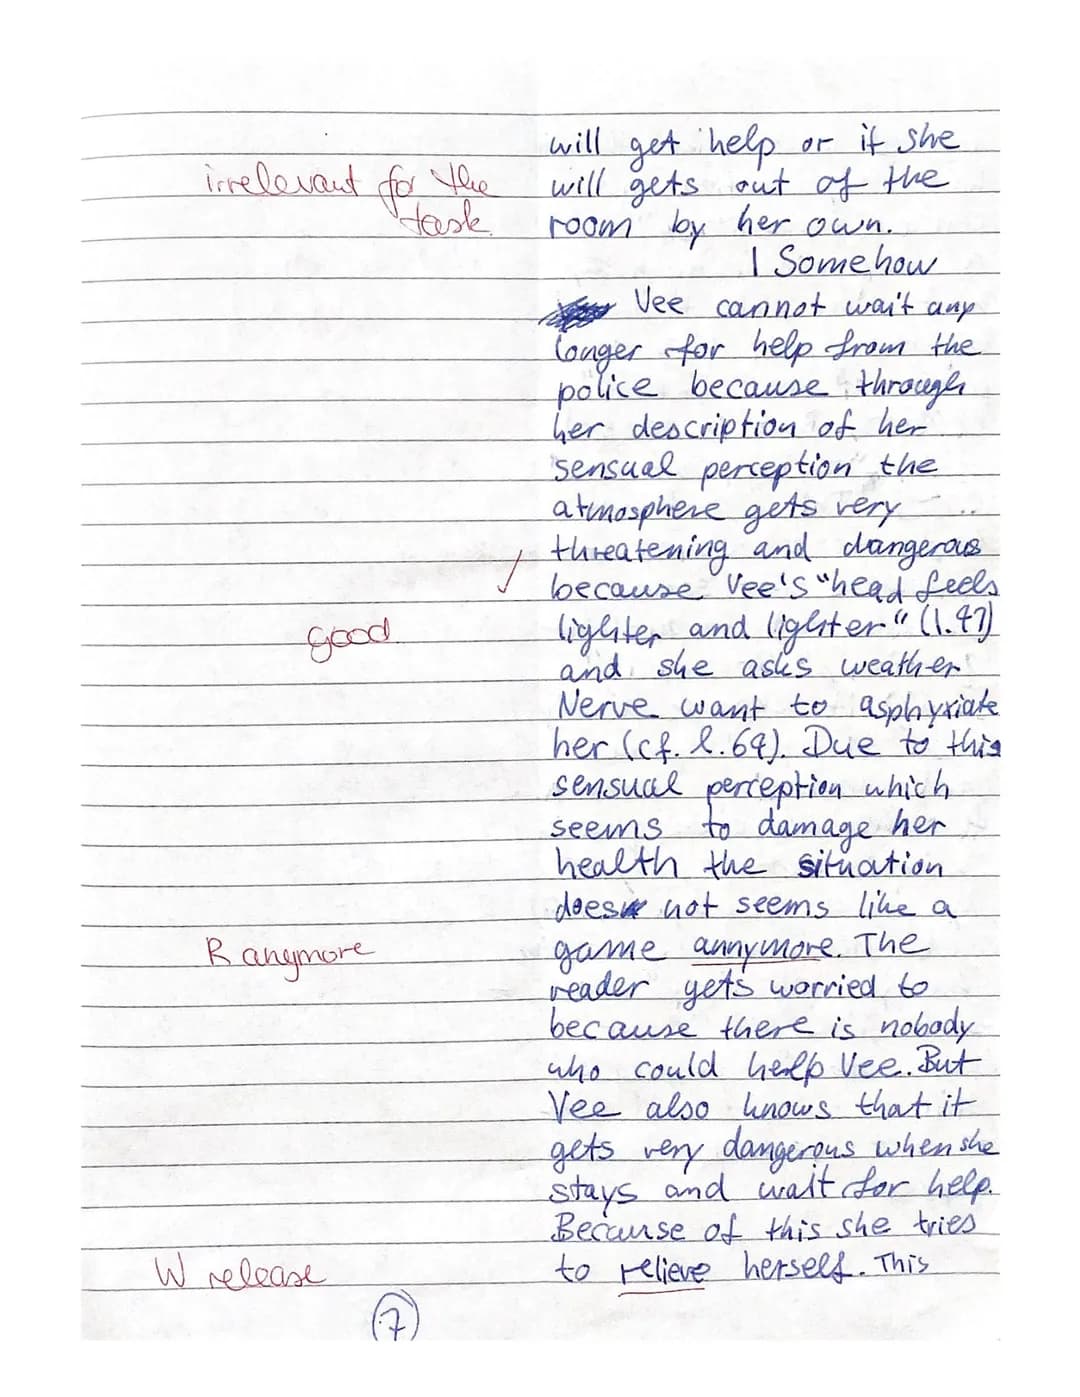 will get help or if she
irrelevant for the
will gets out of the
task
room by her own.
| Somehow
Vee cannot wait any
longer for help from the
police because through
her description of her
sensual perception the
atmosphere gets very
threatening and dangerous
because Vee's "head feels
good
lighter and lighter" (l.47)
and she asks weather
Nerve want to asphyxiate
her (cf. l.69). Due to this
sensual perception which
seems to damage her
health the situation
does not seems like a
R anymore
game annymore. The
reader gets worried to
because there is nobody
who could help Vee. But
Vee also knows that it
gets very dangerous when she
stays and wait for help.
Because of this she tries
W release
to relieve herself. This
7